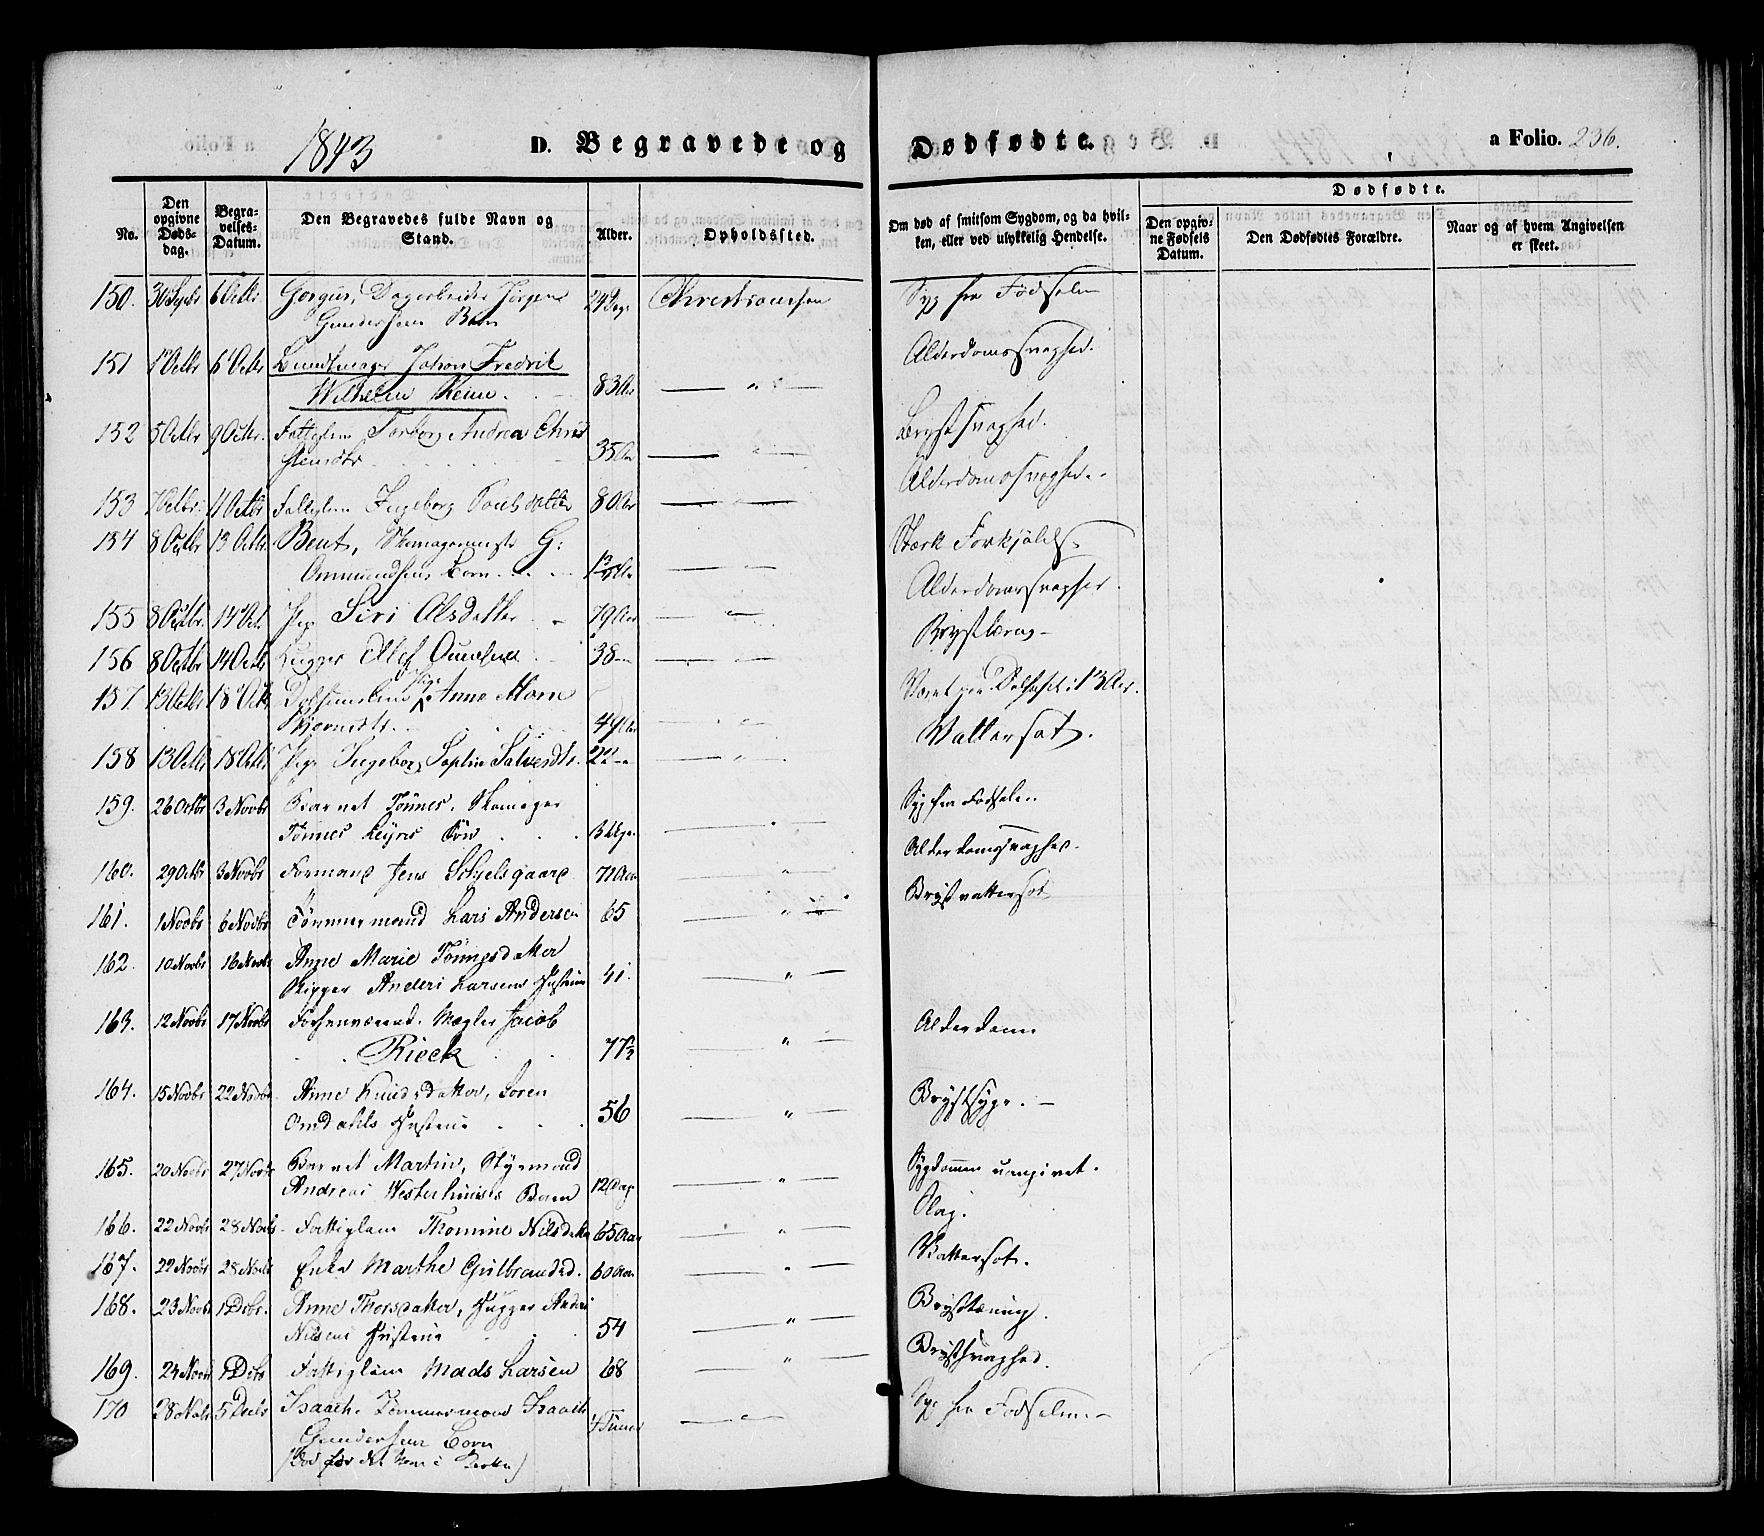 1843
D. Begravede og Dødfødte.
a Folio. 236.
No.
Den opgivne Dødsdag.
Begravelses-Datum.
Den Begravedes fulde Navn og Stand.
Alder.
Opholdssted.
Om død af smitsom Sygdom, og da hvilken, eller ved ulykkelig Hendelse.
Dødfødte.
Den opgivne Fødsels Datum.
Den Dødfødtes Forældre.
Naar og af hvem Angivelsen er skeet.
150. 6 Octbr Dagarbeider Jørgen 24 Dage Christianssand Syg fra Fødselen
Gundersens Barn
151 1 Octbr 6 Octbr Johan Fredrik Alderdomssvaghed.
Wilhelm 83 Aar — " —
152 5 Octbr 9 Octbr. Fattiglem Torborg Andrea Chris Brystsvaghed.
35 Aar — " —
153 7 Octbr. 11 Octbr Fattiglem Ingeborg 80 Aar — " — Alderdomssvaghed.
154 8 Octbr 13 Octbr. Bent, G: Stærk Forkjølelse
Ommundsens Barn — " —
155 8 Octbr. 14 Oct. Siri Olsdatter 79 Aar — " — Alderdomssvaghed.
156 8 Octbr 14 Octbr 38 — " — Brysttæring
157 13 Octbr 18 Octbr Anne Marn Været i 13 Aar.
49 Aar — " —
158 13 Octbr 18 Octbr Pige Ingeborg Sophie 22 — " — Vattersot.
159. 26 Octbr 3 Novbr Barnet Tönnes, Skomager Syg fra Fødselen.
Tönnes Søn 3 Uger — " —
160. 29 Octbr 3 Novbr Formand Jens 71 Aar — " — Alderdomssvaghed.
161. 1 Novbr 6 Novbr Tömmermand Lars Andersen 65 — " — Brystvattersot
162. 10 Novbr 16 Novbr Anne Marie Tönnesdatter
Skipper Anders Larsens Hustrue 41. — " —
163. 12 Novbr 17 Novbr Forhenværend. Mægler Jacob Alderdom
Rieck 77½ — " —
164. 15 Novbr 22 Novbr. Anne Knudsdatter, Soren Brystsyge. —
Omdahls Hustrue 56 — " —
165. 20 Novbr 27 Novbr Barnet Martin, Styrmand Sygdommen uangivet.
Andreas Westerhuuses Barn 12 Dag — " —
166. 22 Novbr 28 Novbr. Fattiglem Thomine Nilsdatter 65 Aar — " — Slag.
167. 22 Novbr 28 Novbr Enke Marthe Gulbrandsd. 60 Aar — " — Vattersot.
168. 23 Novbr 1 Dcbr. Anne Thorsdatter, Anders Brysttæring.
Nilsens Hustrue 54 — " —
169. 24 Novbr 1 Dcbr Fattiglem Mads Larsen 68 — " — Brystsvaghed.
170 28 Novbr 5 Decbr Isaach, Tömmermand Isaach Syg fra Fødselen —
Gundersens Barn 4 Timer — " —
(Død før det kom i Kirken)